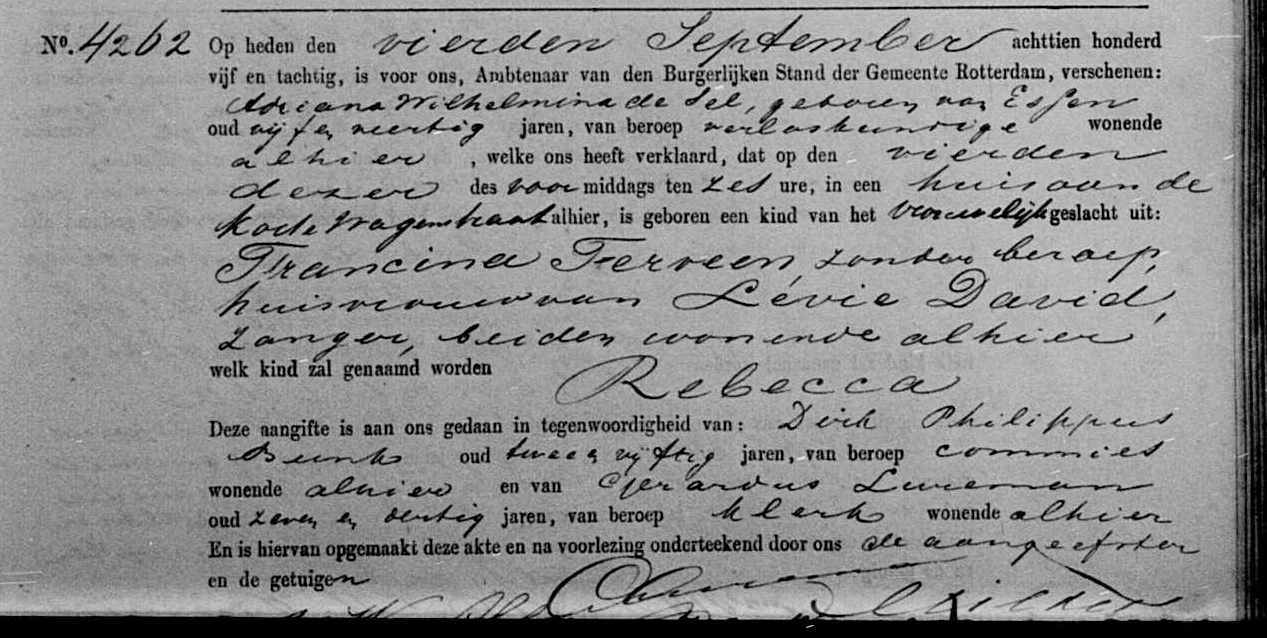 No. 4262 Op heden den vierden September achttien honderd
vijf en tachtig, is voor ons, Ambtenaar van den Burgerlijken Stand der Gemeente Rotterdam, verschenen:
Adriana Wilhelmina de Sel, geboren van Essen
oud vijf en veertig jaren, van beroep verloskundige wonende
alhier , welke ons heeft verklaard, dat op den vierden
dezer des voormiddags ten zes ure, in een huis aan de
Korte Wagenstraat alhier, is geboren een kind van het vrouwelijk geslacht uit:
Francina Terveen, zonder beroep,
huisvrouw van Lévie David,
zanger, beiden wonende alhier
welk kind zal genaamd worden Rebecca
Deze aangifte is aan ons gedaan in tegenwoordigheid van: Dirk Philippus
oud twee en vijftig jaren, van beroep commies
wonende alhier en van Gerardus
oud zeven en dertig jaren, van beroep klerk wonende alhier
En is hiervan opgemaakt deze akte en na voorlezing onderteekend door ons de aangeefster
en de getuigen